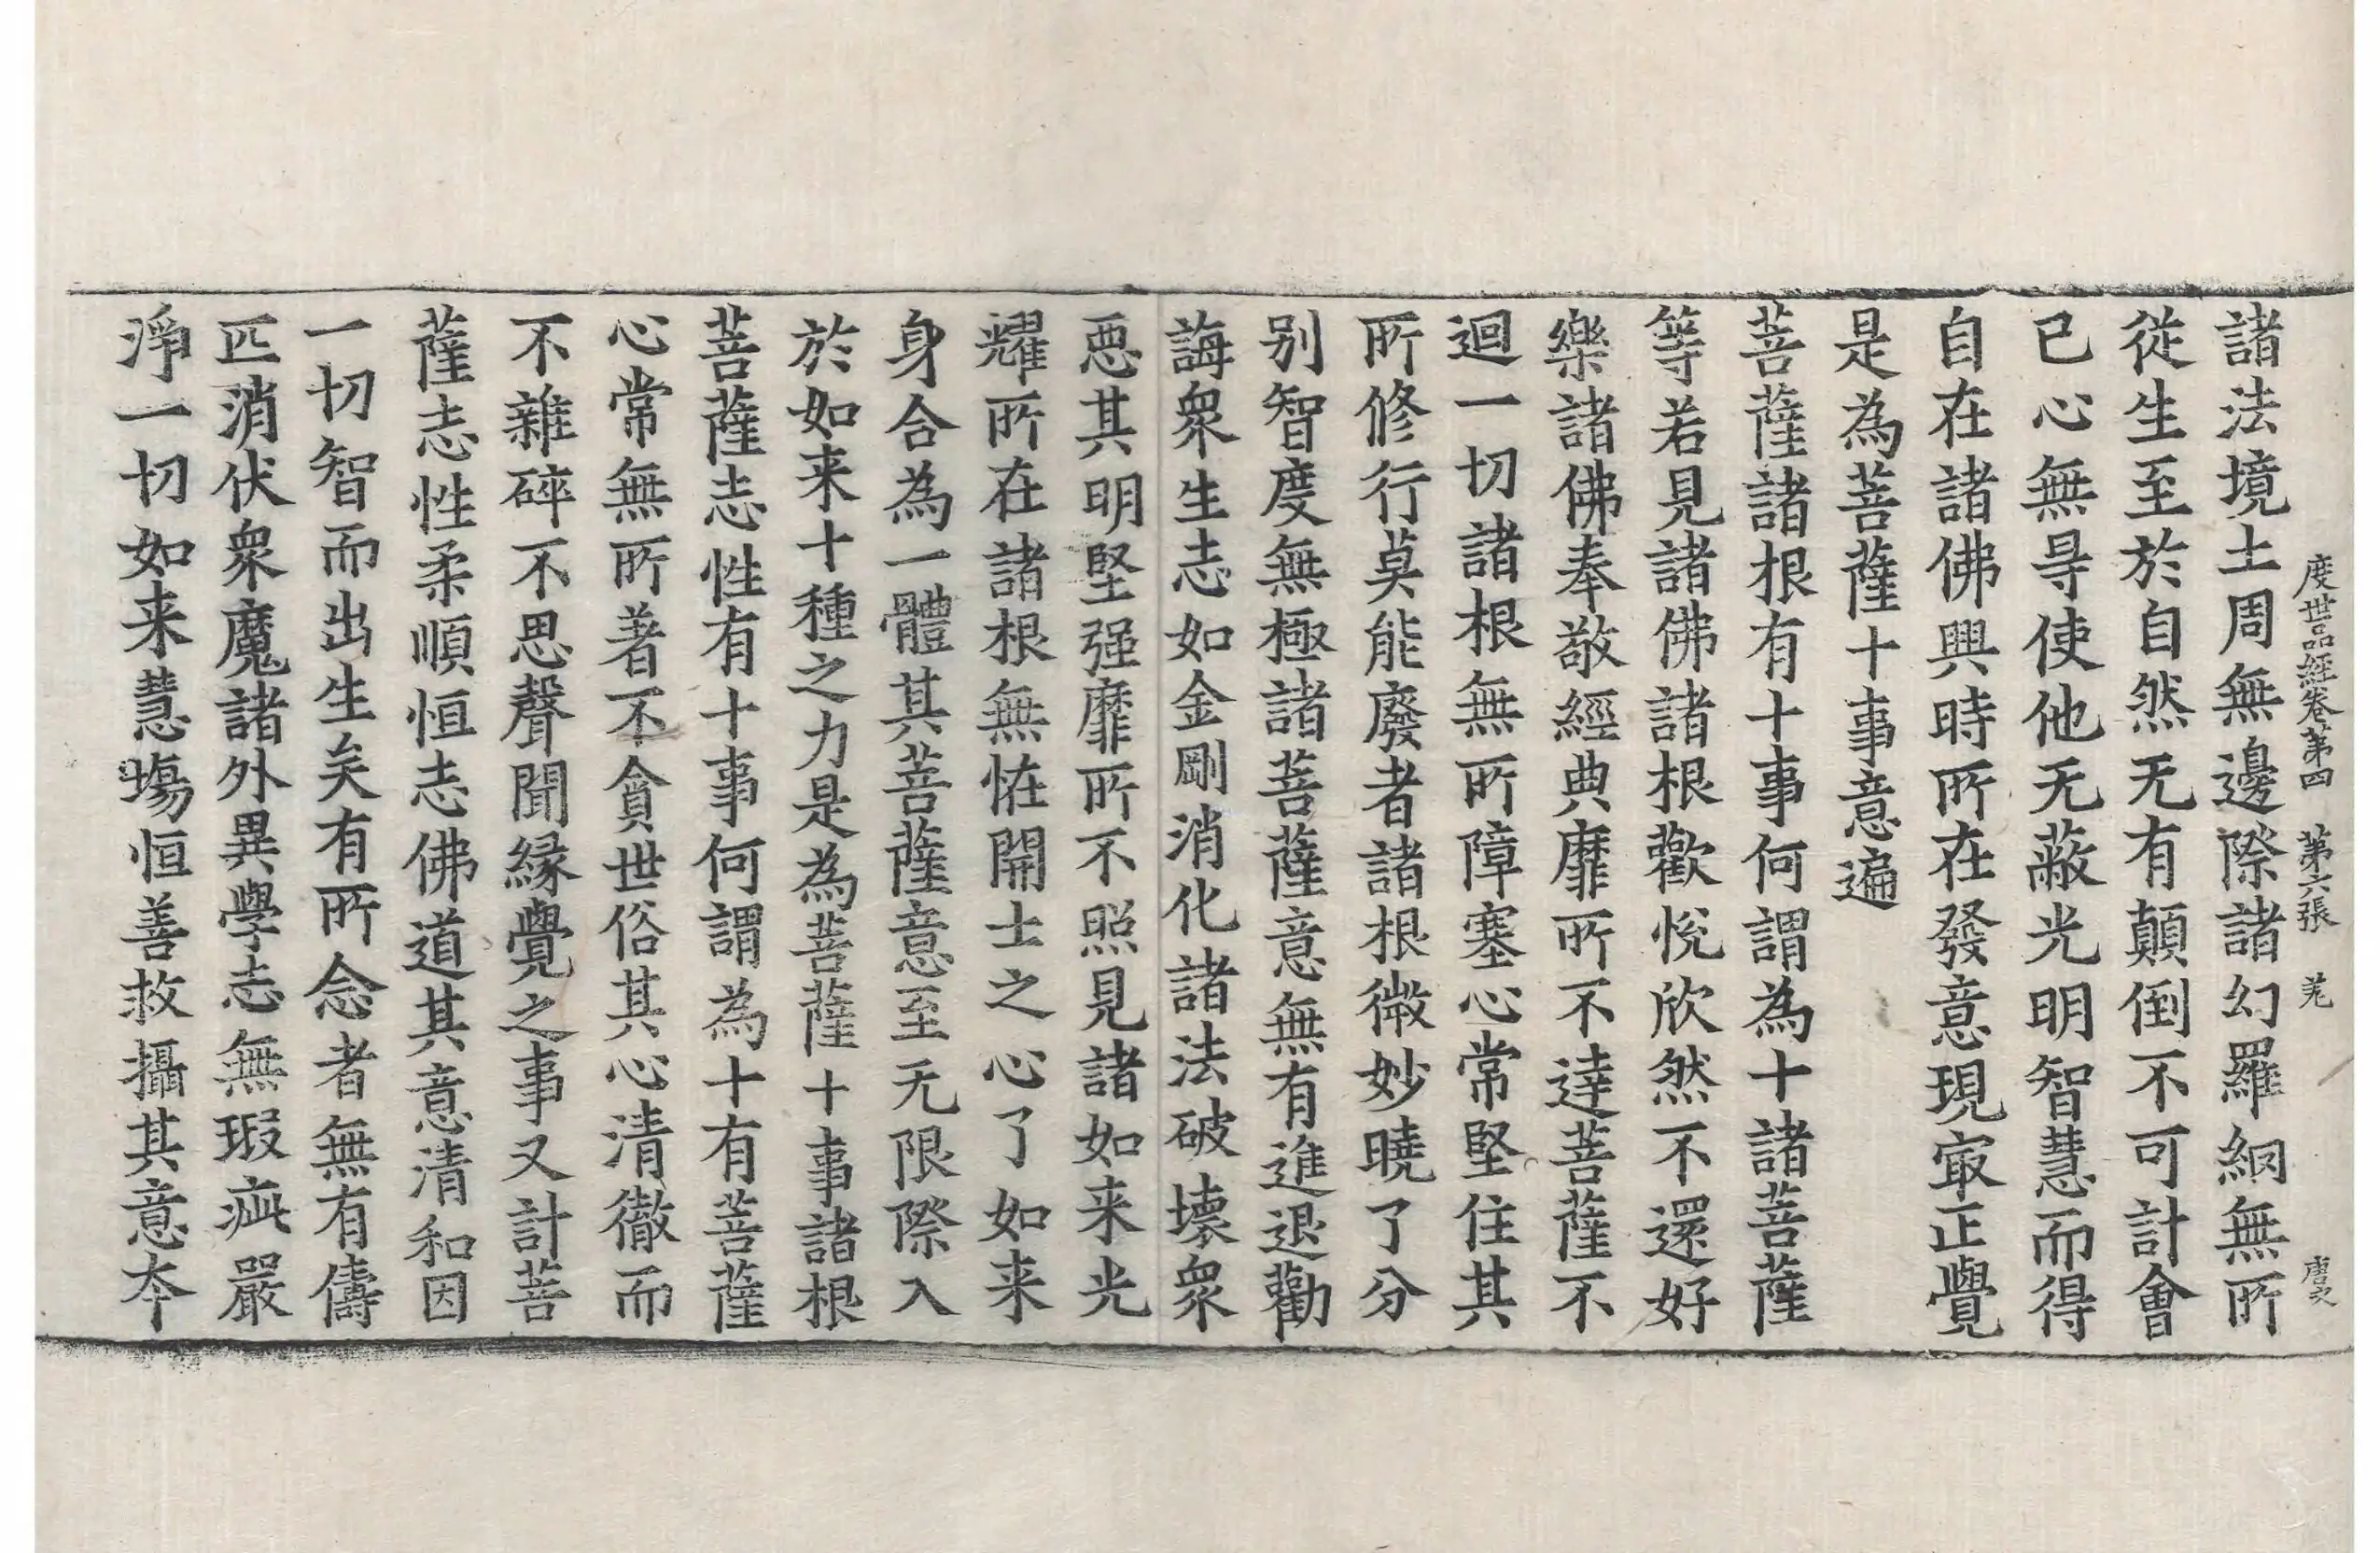 度世品経卷第四　第六張　羌　唐之
諸法境土周無邊際諸幻羅網無所
從生至於自然无有顛倒不可計會
已心無㝵使他无蔽光明智慧而得
自在諸佛興時所在發意現㝡正覺
是為菩薩十事意遍
菩薩諸根有十事何謂為十諸菩薩
等若見諸佛諸根歡悅欣然不還好
樂諸佛奉敬經典靡所不達菩薩不
迴一切諸根無所障塞心常堅住其
所修行莫能廢者諸根微妙曉了分
别智度無極諸菩薩意無有進退勸
誨衆生志如金剛消化諸法破壞衆
惡其明堅强靡所不照見諸如来光
耀所在諸根無恠開士之心了如来
身合為一體其菩薩意至无限際入
於如来十種之力是為菩薩十事諸根
菩薩志性有十事何謂為十有菩薩
心常無所著不貪世俗其心清徹而
不雜碎不思聲聞緣覺之事又計菩
薩志性柔順恒志佛道其意清和因
一切智而出生矣有所念者無有儔
匹消伏衆魔諸外異學志無瑕疵嚴
淨一切如来慧場恒善救攝其意夲